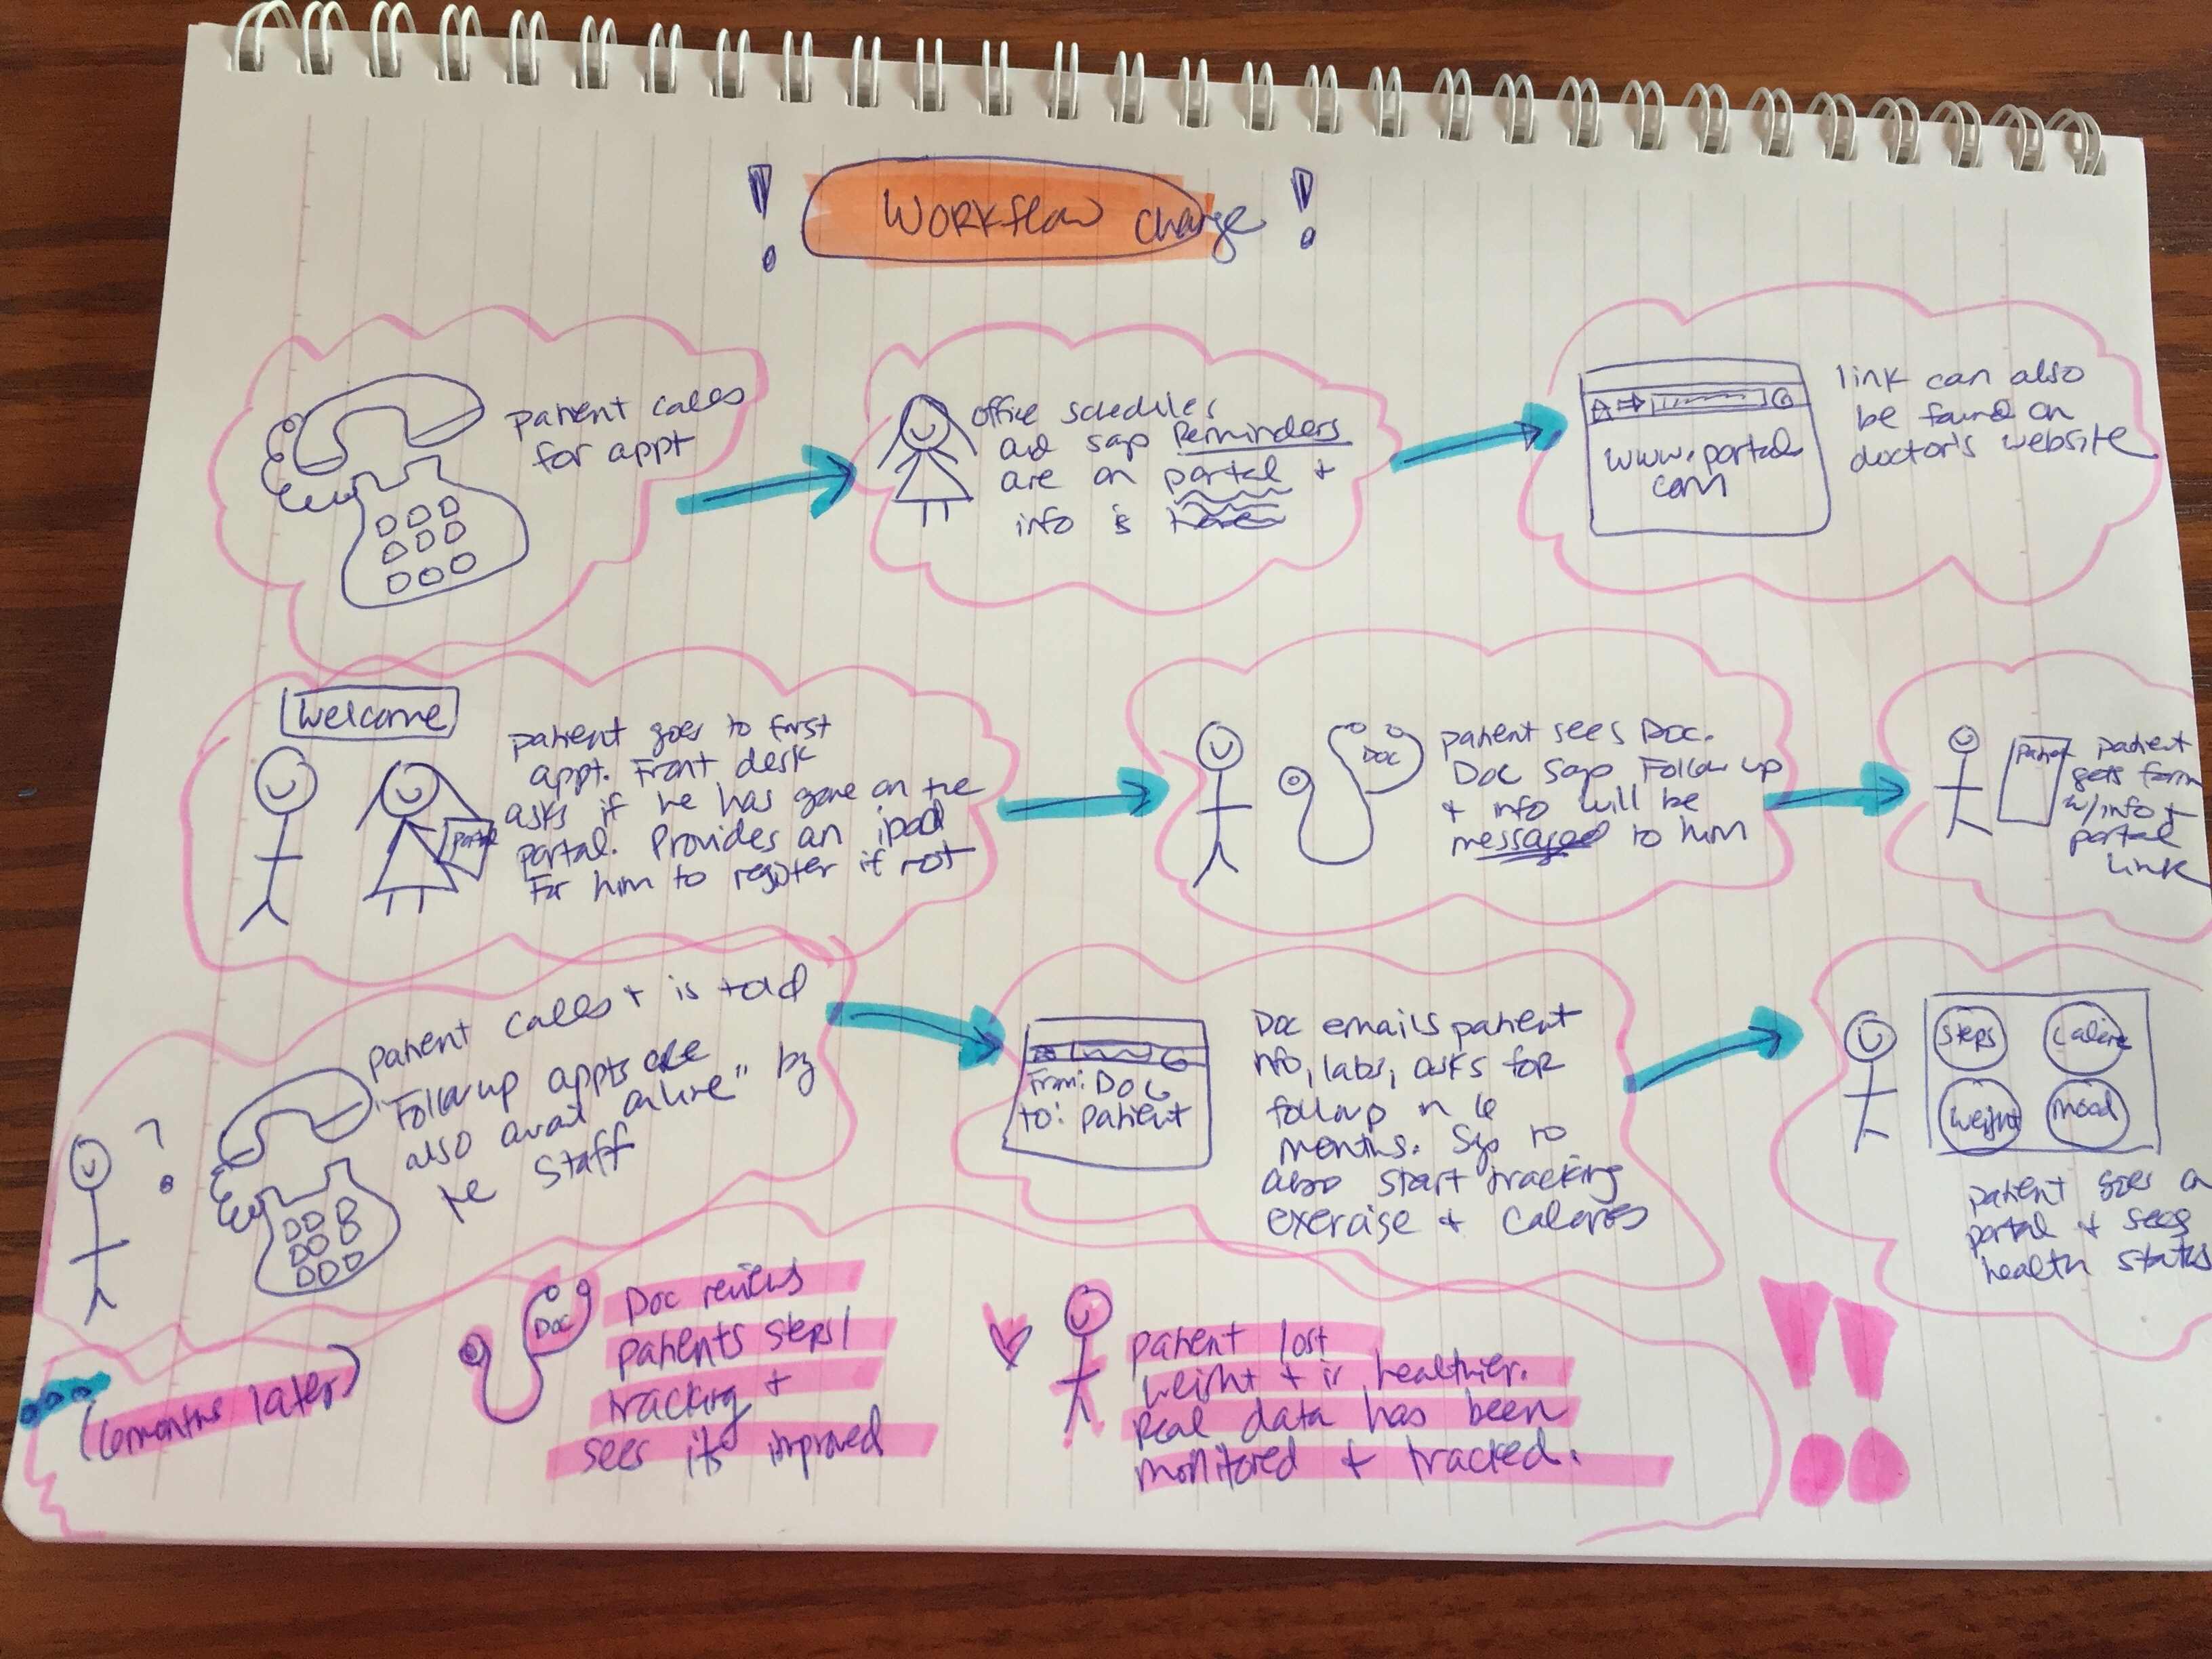 Workflow change
patient calls
for appt
office schedules
and says Reminders
are on portal +
info is here
www.portal
com
link can also
be found on
doctor's website
Welcome
portal
patient goes to first
appt. Front desk
asks if he has gone on the
portal. Provides an ipad
for him to register if not
DOC
patient sees Doc.
Doc says Follow up
+ info will be
messaged to him
patient
gets form
w/info +
portal
link
?
patient calls + is told
"Followup appts are
also avail online" by
the staff
From: DOC
to: patient
Doc emails patient
info, labs, asks for
followup in 6
months. Says to
also start tracking
exercise + calories
Steps
Calorie
weight
mood
patient goes on
portal + sees
health status
(6 months later)
DOC
Doc reviews
patients steps/
tracking +
sees its improved
patient lost
weight + is healthier.
Real data has been
monitored + tracked.